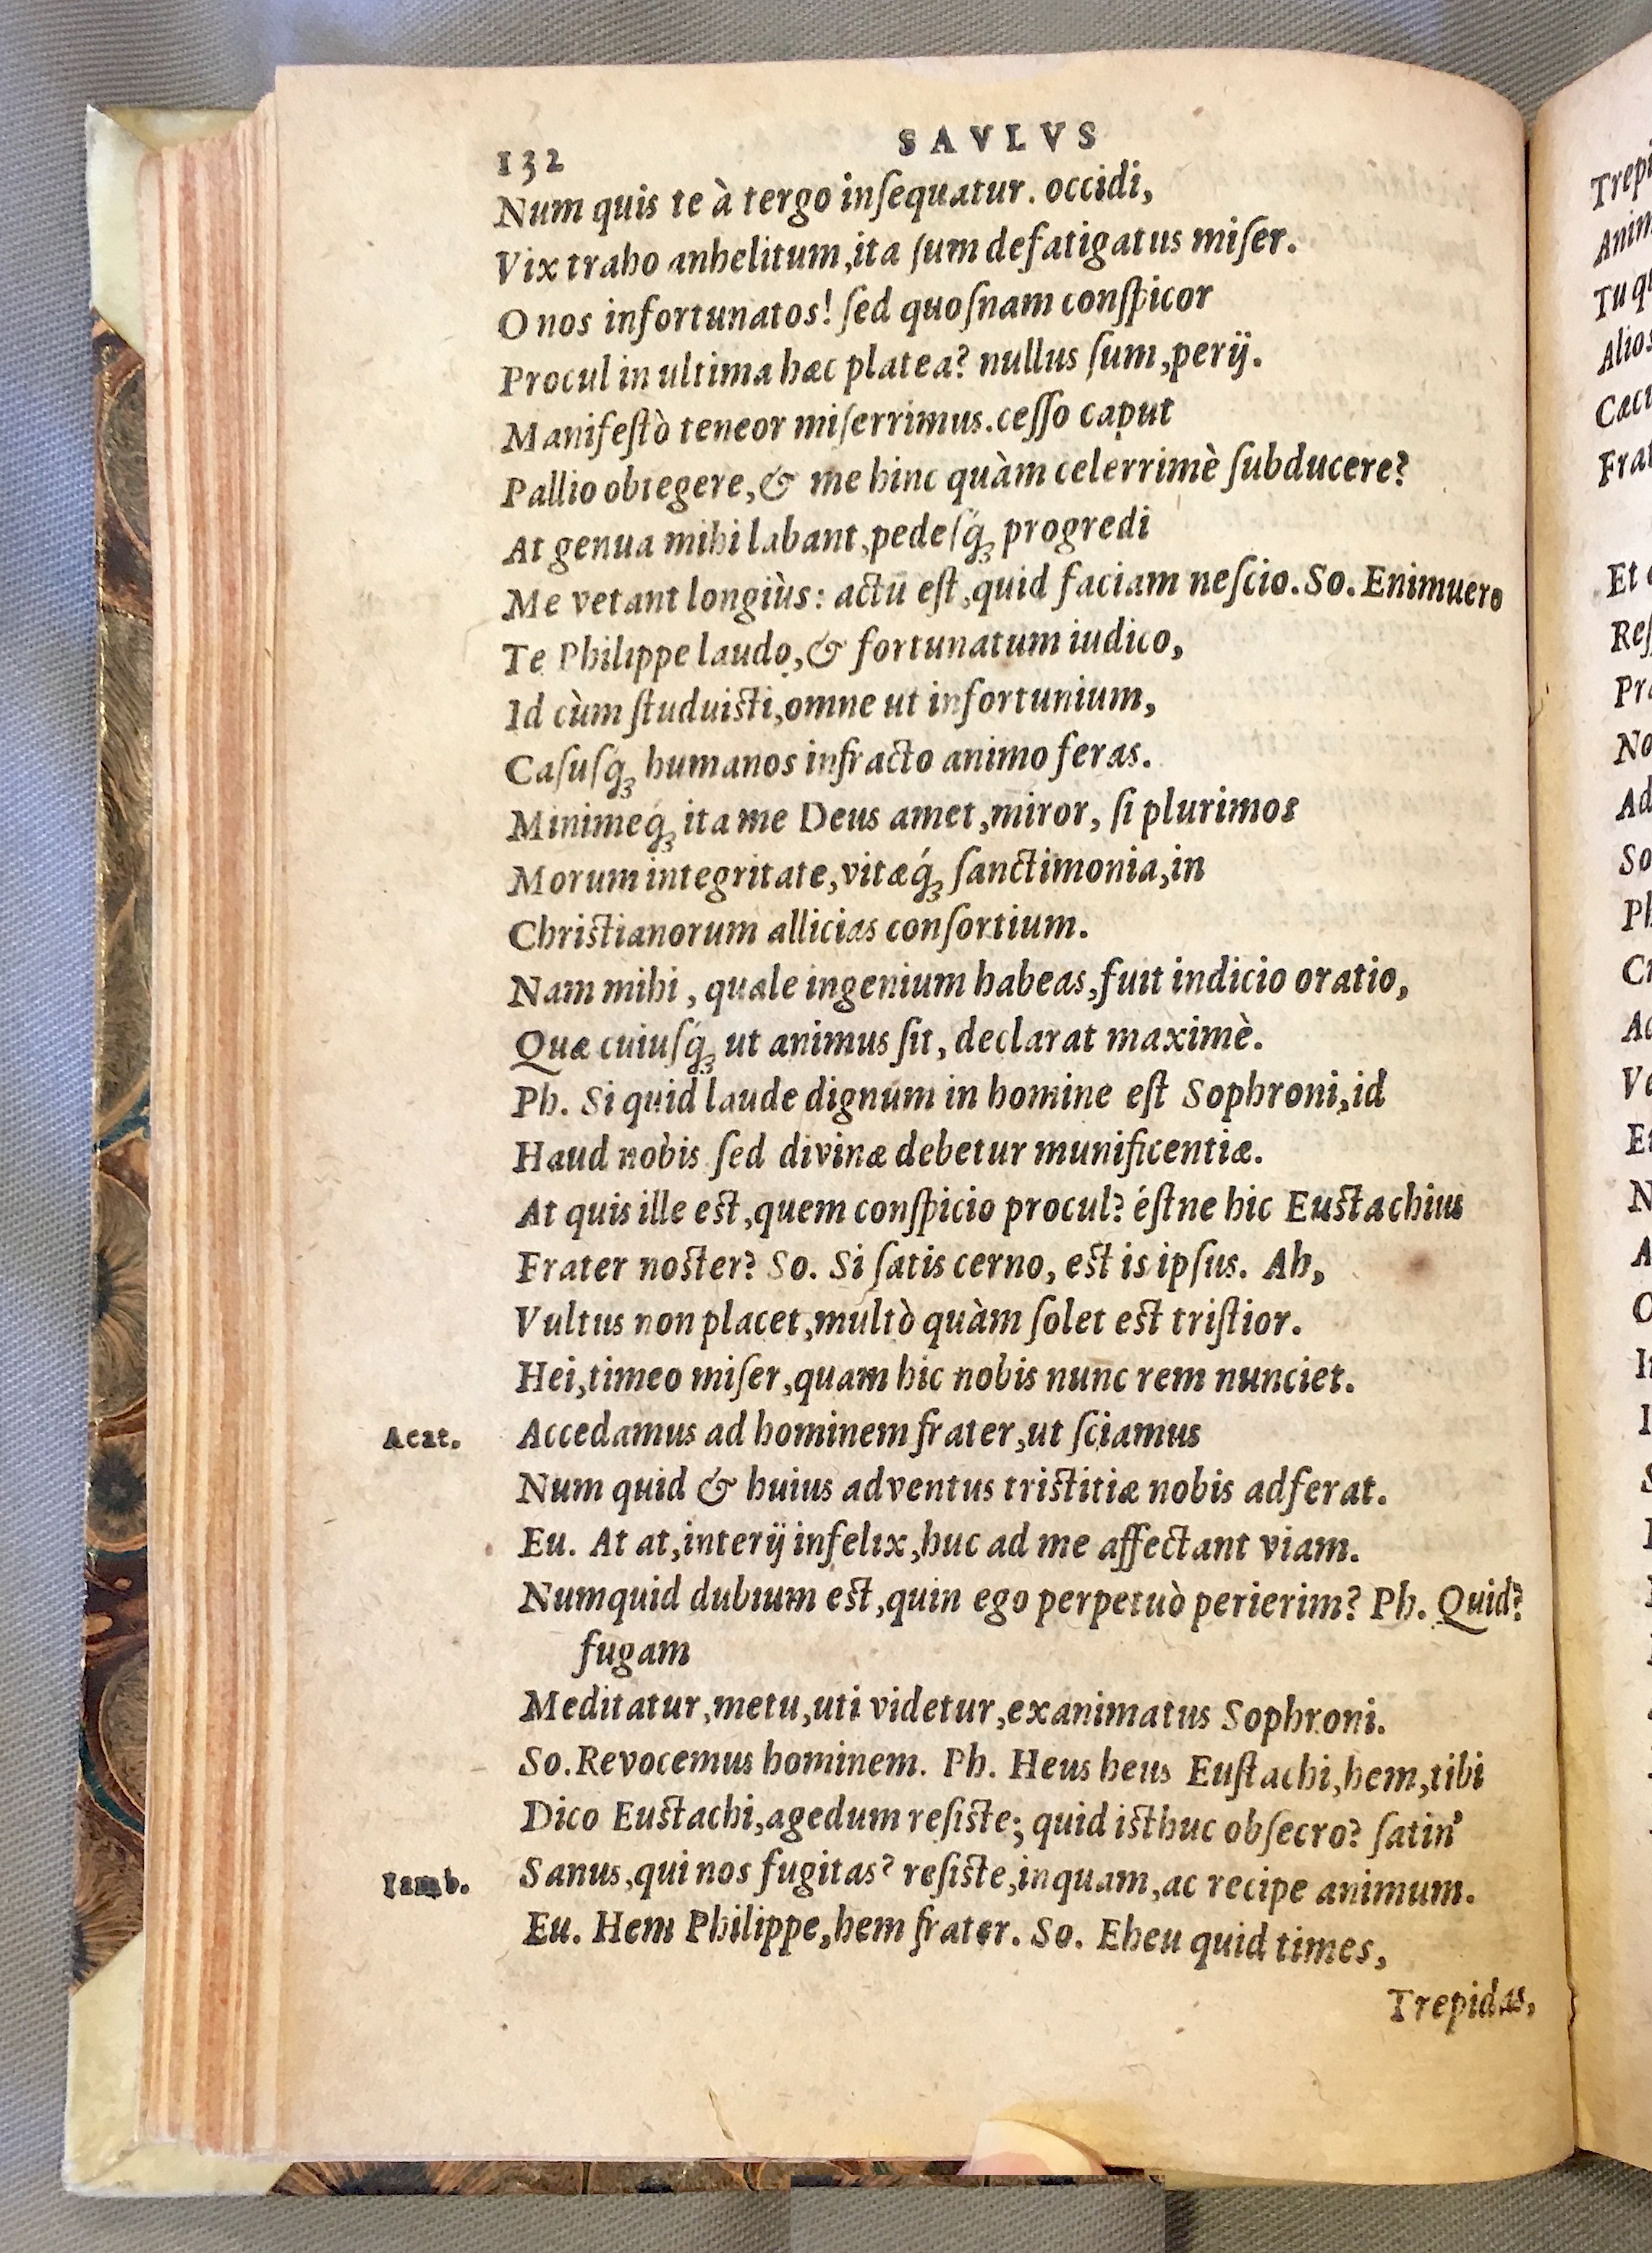 132 SAVLVS
Num quis te à tergo inſequatur. occidi,
Vix traho anhelitum, ita ſum defatigatus miſer.
O nos infortunatos! ſed quoſnam conſpicor
Procul in ultima hæc platea? nullus ſum, perij.
Manifeſtò teneor miſerrimus. ceſſo caput
Pallio obtegere, & me hinc quàm celerrimè ſubducere?
At genua mihi labant, pedeſq́; progredi
Me vetant longiùs: actū eſt, quid faciam neſcio. So. Enimuero
Te Philippe laudo, & fortunatum iudico,
Id cùm ſtuduiſti, omne ut infortunium,
Caſuſq́; humanos infracto animo feras.
Minimeq́; ita me Deus amet, miror, ſi plurimos
Morum integritate, vitæq́; ſanctimonia, in
Chriſtianorum allicias conſortium.
Nam mihi, quale ingenium habeas, fuit indicio oratio,
Quæ cuiuſq́; ut animus ſit, declarat maximè.
Ph. Si quid laude dignum in homine eſt Sophroni, id
Haud nobis ſed divinæ debetur munificentiæ.
At quis ille eſt, quem conſpicio procul? éſtne hic Euſtachius
Frater noſter? So. Si ſatis cerno, eſt is ipſus. Ah,
Vultus non placet, multò quàm ſolet eſt triſtior.
Hei, timeo miſer, quam hic nobis nunc rem nunciet.
Acat. Accedamus ad hominem frater, ut ſciamus
Num quid & huius adventus triſtitiæ nobis adferat.
Eu. At at, interij infelix, huc ad me affectant viam.
Numquid dubium eſt, quin ego perpetuò perierim? Ph. Quid?
fugam
Meditatur, metu, uti videtur, exanimatus Sophroni.
So. Revocemus hominem. Ph. Heus heus Euſtachi, hem, tibi
Dico Euſtachi, agedum reſiſte; quid iſthuc obſecro? ſatin'
Iamb. Sanus, qui nos fugitas? reſiſte, inquam, ac recipe animum.
Eu. Hem Philippe, hem frater. So. Eheu quid times,
Trepidas,
Trepi
Anim
Tu qu
Alios
Cæci
Frat
Et
Reſ
Pra
No
Ad
So
Ph
Cr
Ve